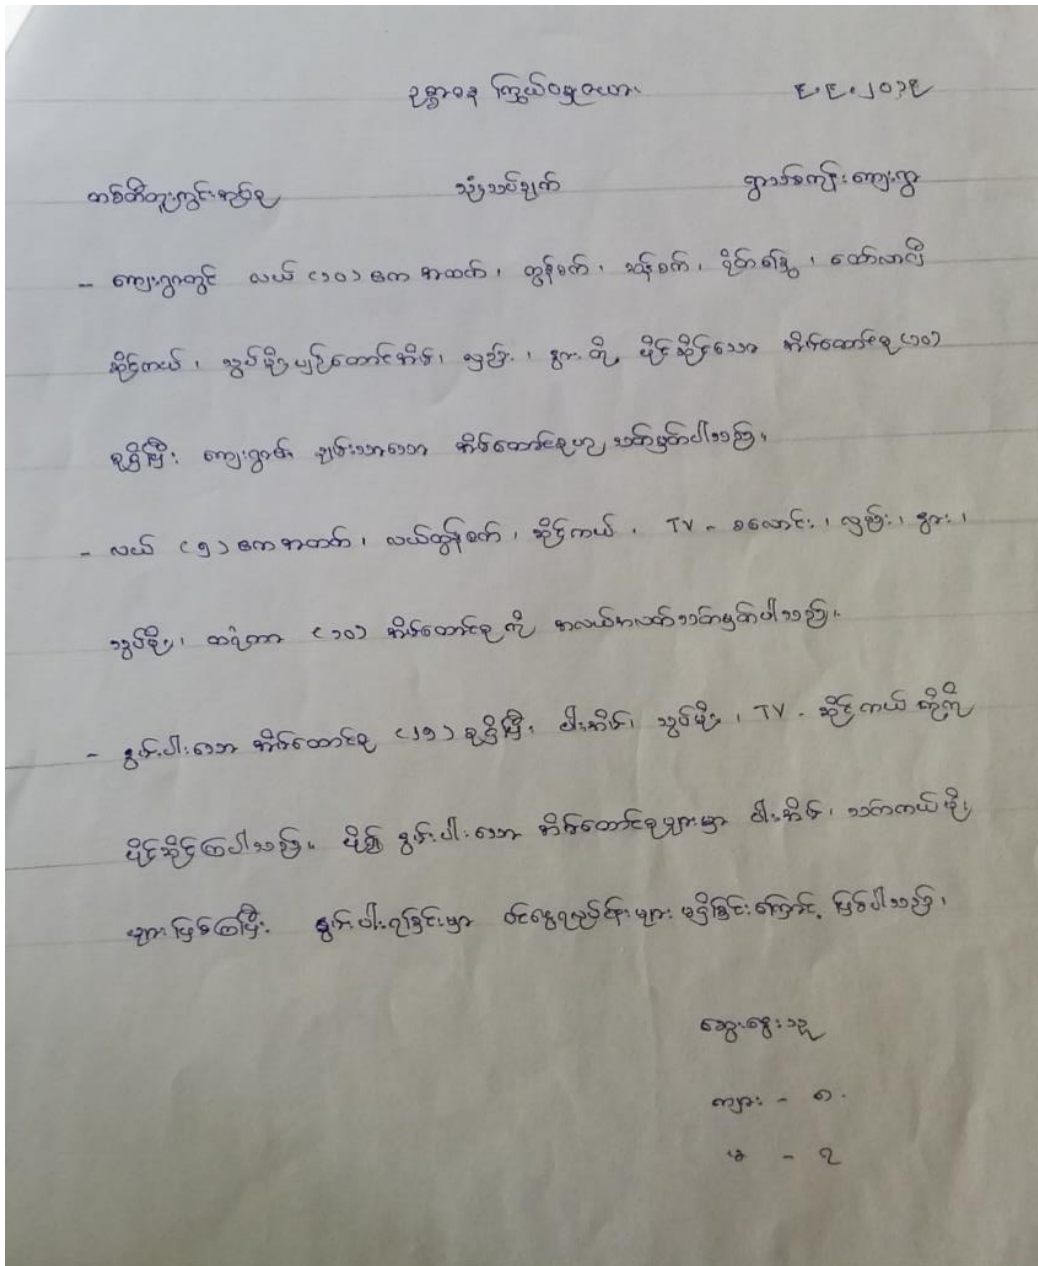 ဥစ္စာဓန ကြွယ်ဝမှုဇယား ၉.၉.၂၀၁၉
တစ်တီတူးကွင်းအုပ်စု သုံးသပ်ချက် ရွာသစ်ကုန်းကျေးရွာ
- ကျေးရွာတွင် လယ် (၁၀) ဧက အထက်၊ ထွန်စက်၊ ဆန်စက်၊ ထော်လာဂျီ
ဆိုင်ကယ်၊ သွပ်မိုးပျဉ်ထောင်အိမ်၊ လှည်း၊ နွား တို့ ပိုင်ဆိုင်သော အိမ်ထောင်စု (၁၀)
စုရှိပြီး ကျေးရွာ၏ ချမ်းသာသော အိမ်ထောင်စုဟု သတ်မှတ်ပါသည်။
- လယ် (၅) ဧကအထက်၊ လယ်ထွန်စက်၊ ဆိုင်ကယ်၊ TV - စလောင်း၊ လှည်း၊ နွား၊
သွပ်မိုး၊ ထရံကာ (၁၀) အိမ်ထောင်စုကို အလယ်အလတ်သတ်မှတ်ပါသည်။
- နွမ်းပါးသော အိမ်ထောင်စု (၂၅) စုရှိပြီး ဝါးအိမ်၊ သွပ်မိုး၊ TV - ဆိုင်ကယ် တို့ကို
ပိုင်ဆိုင်ကြပါသည်။ ပို၍ နွမ်းပါးသော အိမ်ထောင်စုများမှာ ဝါးအိမ်၊ သက်ကယ်မိုး
များဖြစ်ကြပြီး နွမ်းပါးရခြင်းမှာ ဝင်ငွေရလုပ်ငန်းများ မရှိခြင်းကြောင့် ဖြစ်ပါသည်။
ဆွေးနွေးသူ
ကျား - ၈
မ - ၃